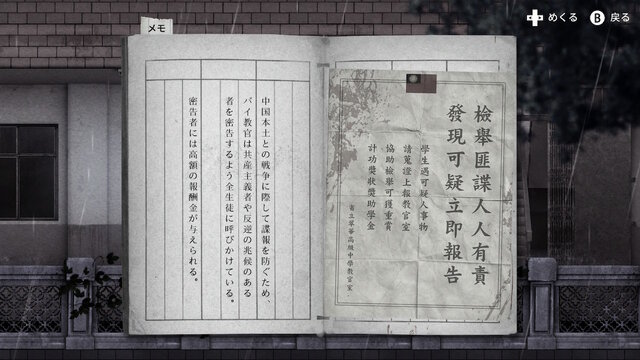 メモ
めくる
B 戻る
中国本土との戦争に際して諜報を防ぐため、
バイ教官は共産主義者や反逆の兆候のある
者を密告するよう全生徒に呼びかけている。
密告者には高額の報酬金が与えられる。
檢舉匪諜人人有責
發現可疑立即報告
學生遇可疑人事物
請蒐證上報教官室
協助檢舉可獲重賞
計功獎狀獎助學金
省立翠華高級中學教官室